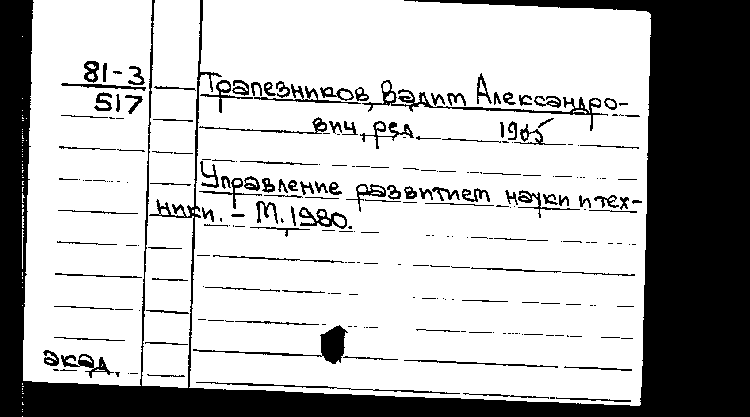 81-3
517
Трапезников, Вадим Александро-
вич, ред. 1905
Управление развитием науки и тех-
ники. - М., 1980.
акад.